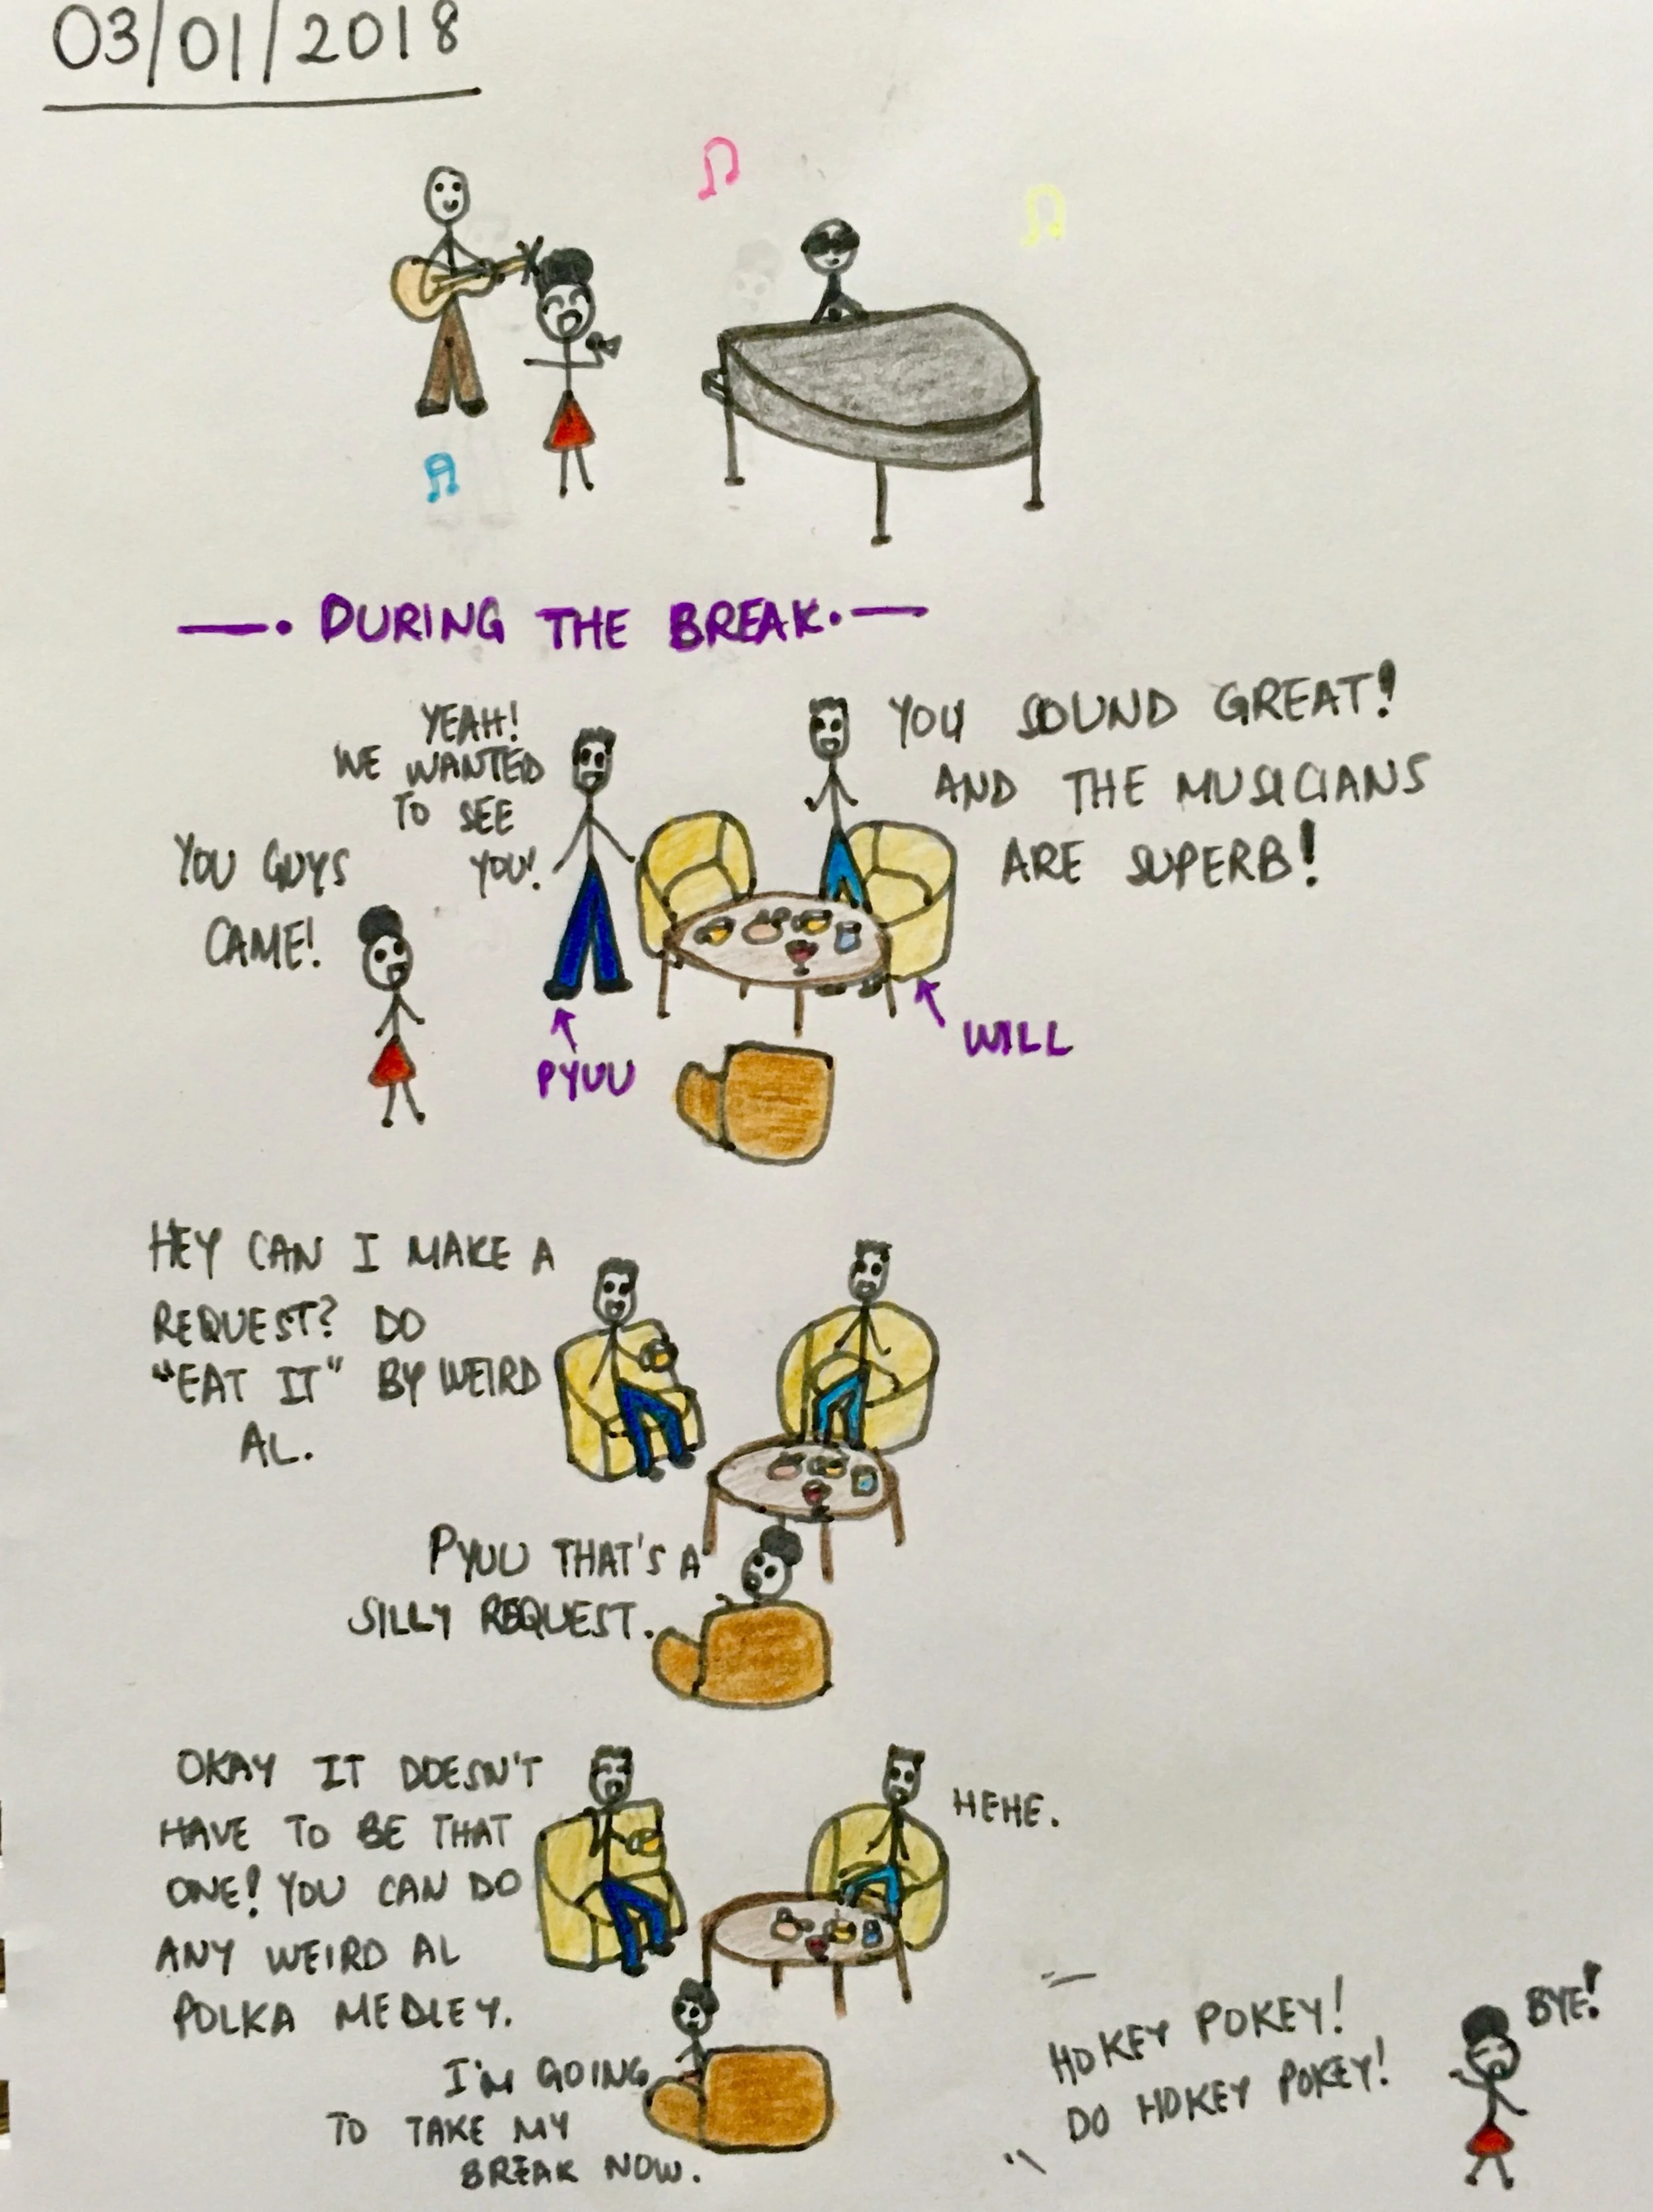 03/01/2018
—. DURING THE BREAK. —
YEAH!
WE WANTED
TO SEE
YOU!
YOU SOUND GREAT!
AND THE MUSICIANS
ARE SUPERB!
YOU GUYS
CAME!
PYUU
WILL
HEY CAN I MAKE A
REQUEST? DO
"EAT IT" BY WEIRD
AL.
PYUU THAT'S A
SILLY REQUEST.
OKAY IT DOESN'T
HAVE TO BE THAT
ONE! YOU CAN DO
ANY WEIRD AL
POLKA MEDLEY.
HEHE.
I'M GOING
TO TAKE MY
BREAK NOW.
HOKEY POKEY!
DO HOKEY POKEY!
BYE!